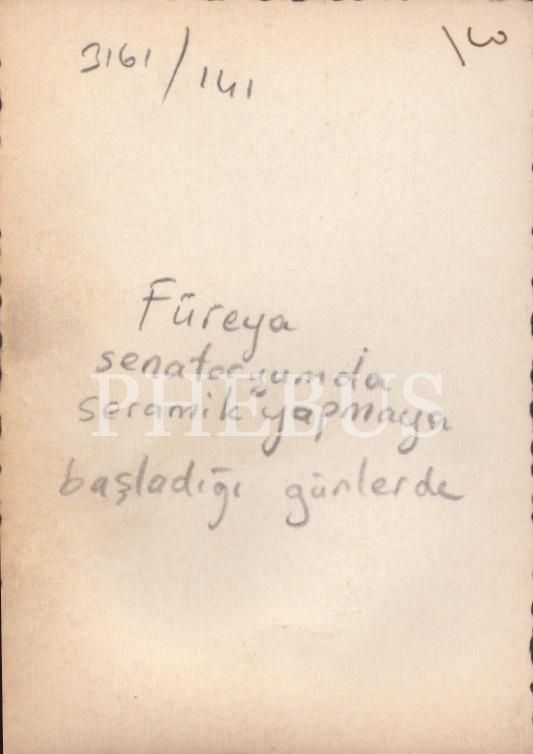 3161/141
Füreya
senatoryumda
seramik yapmaya
PHEBUS
başladığı günlerde